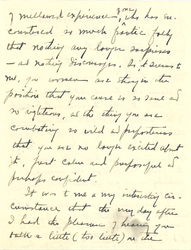 of mellowed experience - one who has en-
countered so much poetic folly
that nothing any longer surprises
- and nothing discourages. So it seems to
me, you women are strong in the
position that your cause is so sane and
so righteous, and the thing you are
combating so wild and preposterous
that you are no longer excited about
it, just calm and purposeful and
perhaps confident.
It was to me a very interesting cir-
cumstance that the very day after
I had the pleasure of hearing you
talk a little (too little) on the